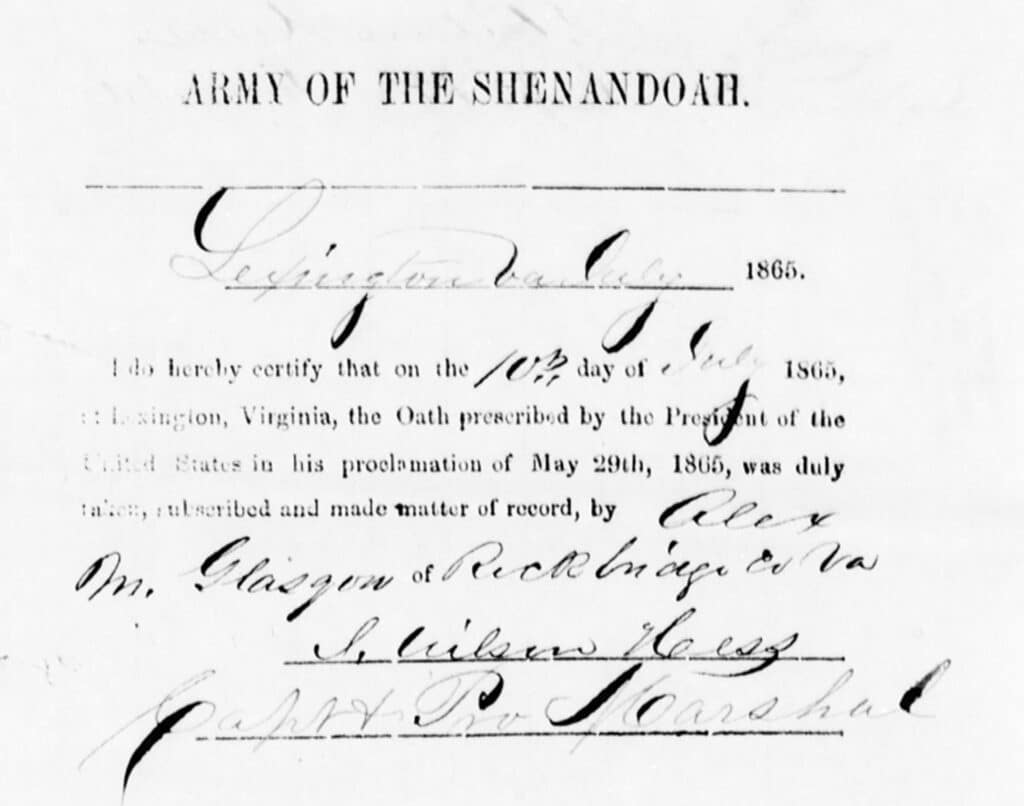 ARMY OF THE SHENANDOAH.
Lexington Va July 1865.
I do hereby certify that on the 10th day of July 1865,
at Lexington, Virginia, the Oath prescribed by the President of the
United States in his proclamation of May 29th, 1865, was duly
taken, subscribed and made matter of record, by Alex
M. Glasgow of Rockbridge Co Va
Wilson Hess
Capt & Pro Marshal